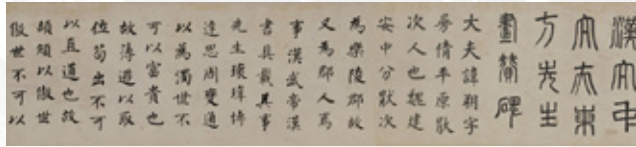 漢太中
大夫東
方先生
畫贊碑
大夫諱朔字
曼倩平原厭
次人也魏建
安中分厭次
為樂陵郡故
又為郡人焉
事漢武帝漢
書具載其事
先生瓌瑋博
達思周變通
以為濁世不
可以富貴也
故薄遊以取
位苟出不可
以直道也故
頡頏以傲世
傲世不可以